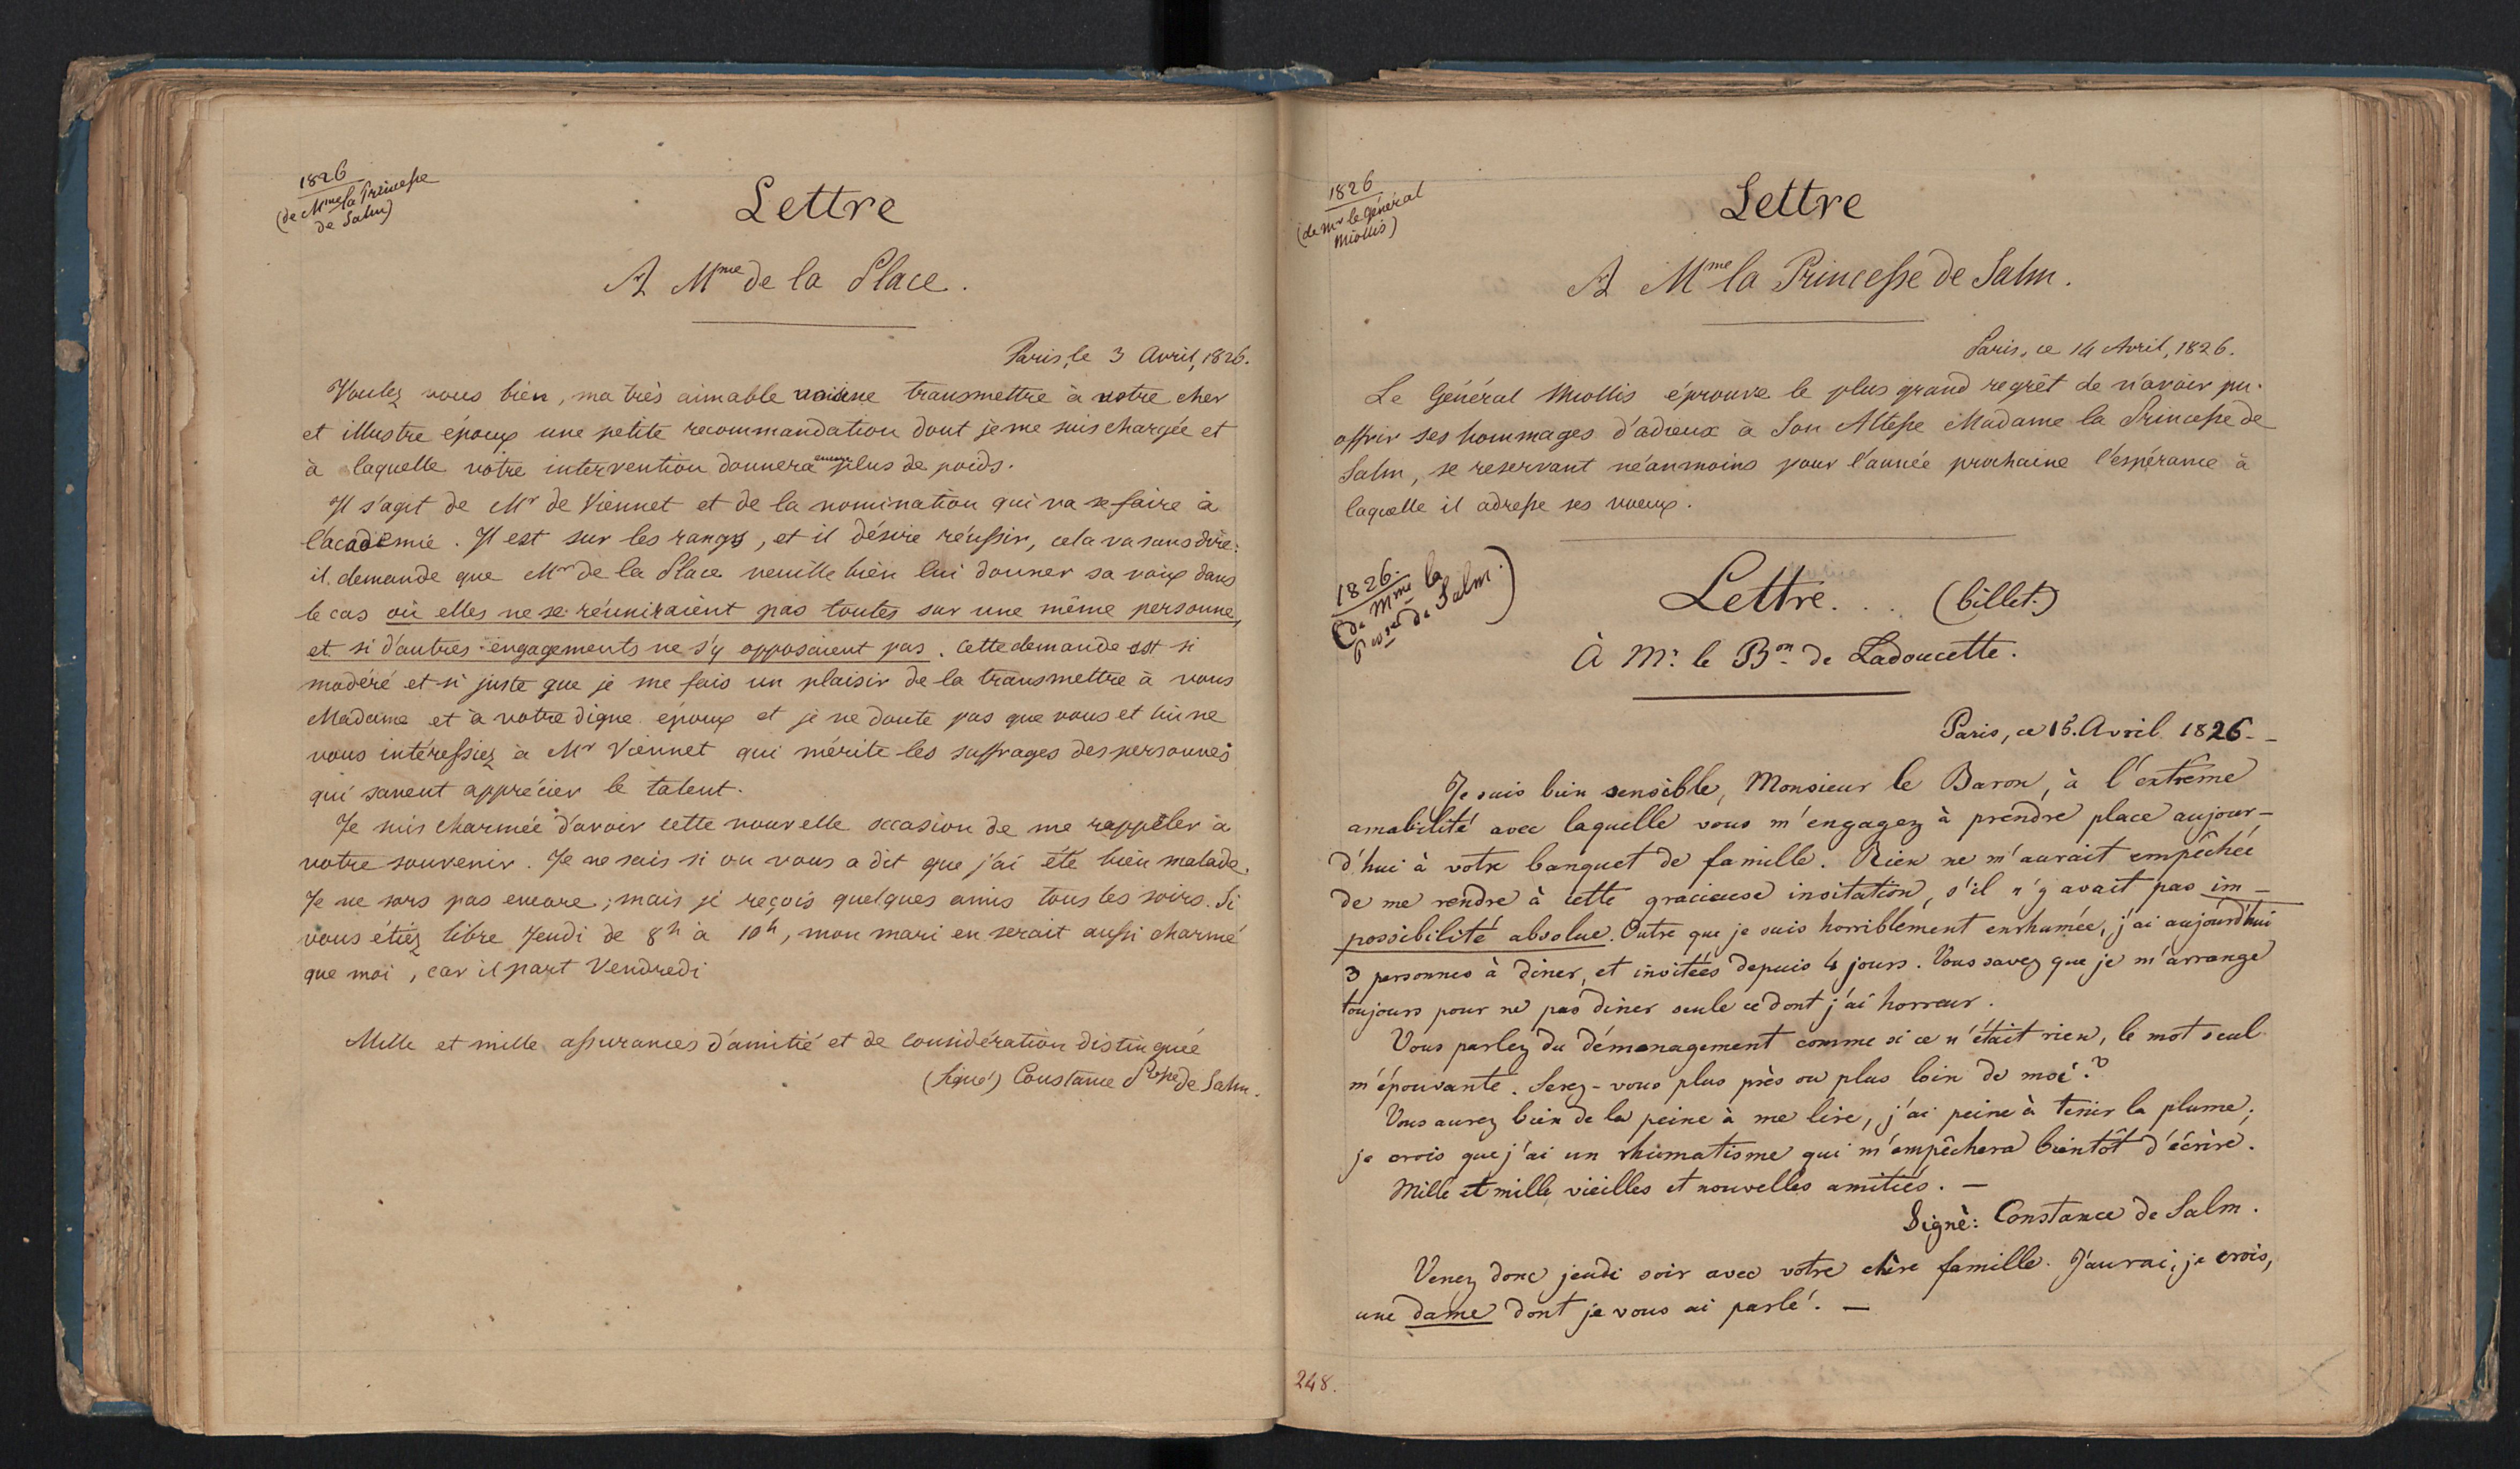 1826
(de Mme la Princesse
de Salm)
Lettre
A Mme de la Place.
Paris, le 3 Avril, 1826.
Voulez vous bien, ma très aimable voisine transmettre à votre cher
et illustre époux une petite recommandation dont je me suis chargée et
à laquelle votre intervention donnera encore plus de poids.
Il s'agit de Mr de Viennet et de la nomination qui va se faire à
l'académie. Il est sur les rangs, et il désire réussir, cela va sans dire:
il demande que Mr de la Place veuille bien lui donner sa voix dans
le cas où elles ne se réuniraient pas toutes sur une même personne,
et si d'autres engagements ne s'y opposaient pas. Cette demande est si
modéré et si juste que je me fais un plaisir de la transmettre à vous
Madame et à votre digne époux et je ne doute pas que vous et lui ne
vous intéressiez à Mr Viennet qui mérite les suffrages des personnes
qui savent apprécier le talent.
Je suis charmée d'avoir cette nouvelle occasion de me rappeler à
votre souvenir. Je ne sais si on vous a dit que j'ai été bien malade.
Je ne sors pas encore; mais je reçois quelques amis tous les soirs. Si
vous étiez libre Jeudi de 8h à 10h, mon mari en serait aussi charmé
que moi, car il part Vendredi
Mille et mille assurances d'amitié et de considération distinguée
(Signé) Constance Psse de Salm.
1826
(de Mr le général
Miollis)
Lettre
A Mme la Princesse de Salm.
Paris, ce 14 Avril, 1826.
Le Général Miollis éprouve le plus grand regrêt de n'avoir pu
offrir ses hommages d'adieux à Son Altesse Madame la Princesse de
Salm, se reservant néanmoins pour l'année prochaine l'espérance à
laquelle il adresse ses voeux.
1826.
(de Mme la
Pesse de Salm.)
Lettre. . . (billet.)
À Mr. le Bon. de Ladoucette.
Paris, ce 15. Avril 1826. -
Je suis bien sensible, Monsieur le Baron, à l'extrême
amabilité avec laquelle vous m'engagez à prendre place aujour-
d'hui à votre banquet de famille. Rien ne m'aurait empêchée
de me rendre à cette gracieuse invitation, s'il n'y avait pas im-
possibilité absolue. Outre que je suis horriblement enrhumée, j'ai aujourd'hui
3 personnes à diner, et invitées depuis 4 jours. Vous savez que je m'arrange
toujours pour ne pas diner seule ce dont j'ai horreur.
Vous parlez du démenagement comme si ce n'était rien, le mot seul
m'épouvante. Serez-vous plus près ou plus loin de moi?
Vous aurez bien de la peine à me lire, j'ai peine à tenir la plume;
je crois que j'ai un rhumatisme qui m'empêchera bientôt d'écrire.
Mille et mille vieilles et nouvelles amitiés. -
Signé: Constance de Salm.
Venez donc jeudi soir avec votre chère famille. J'aurai, je crois,
une dame dont je vous ai parlé. -
248.